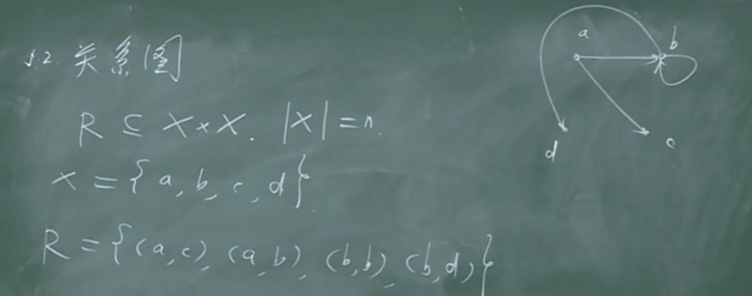 5.2 关系图
R ⊆ X × X. |X| = n.
X = {a, b, c, d}
R = {(a,c), (a,b), (b,b), (b,d)}
a
b
d
c